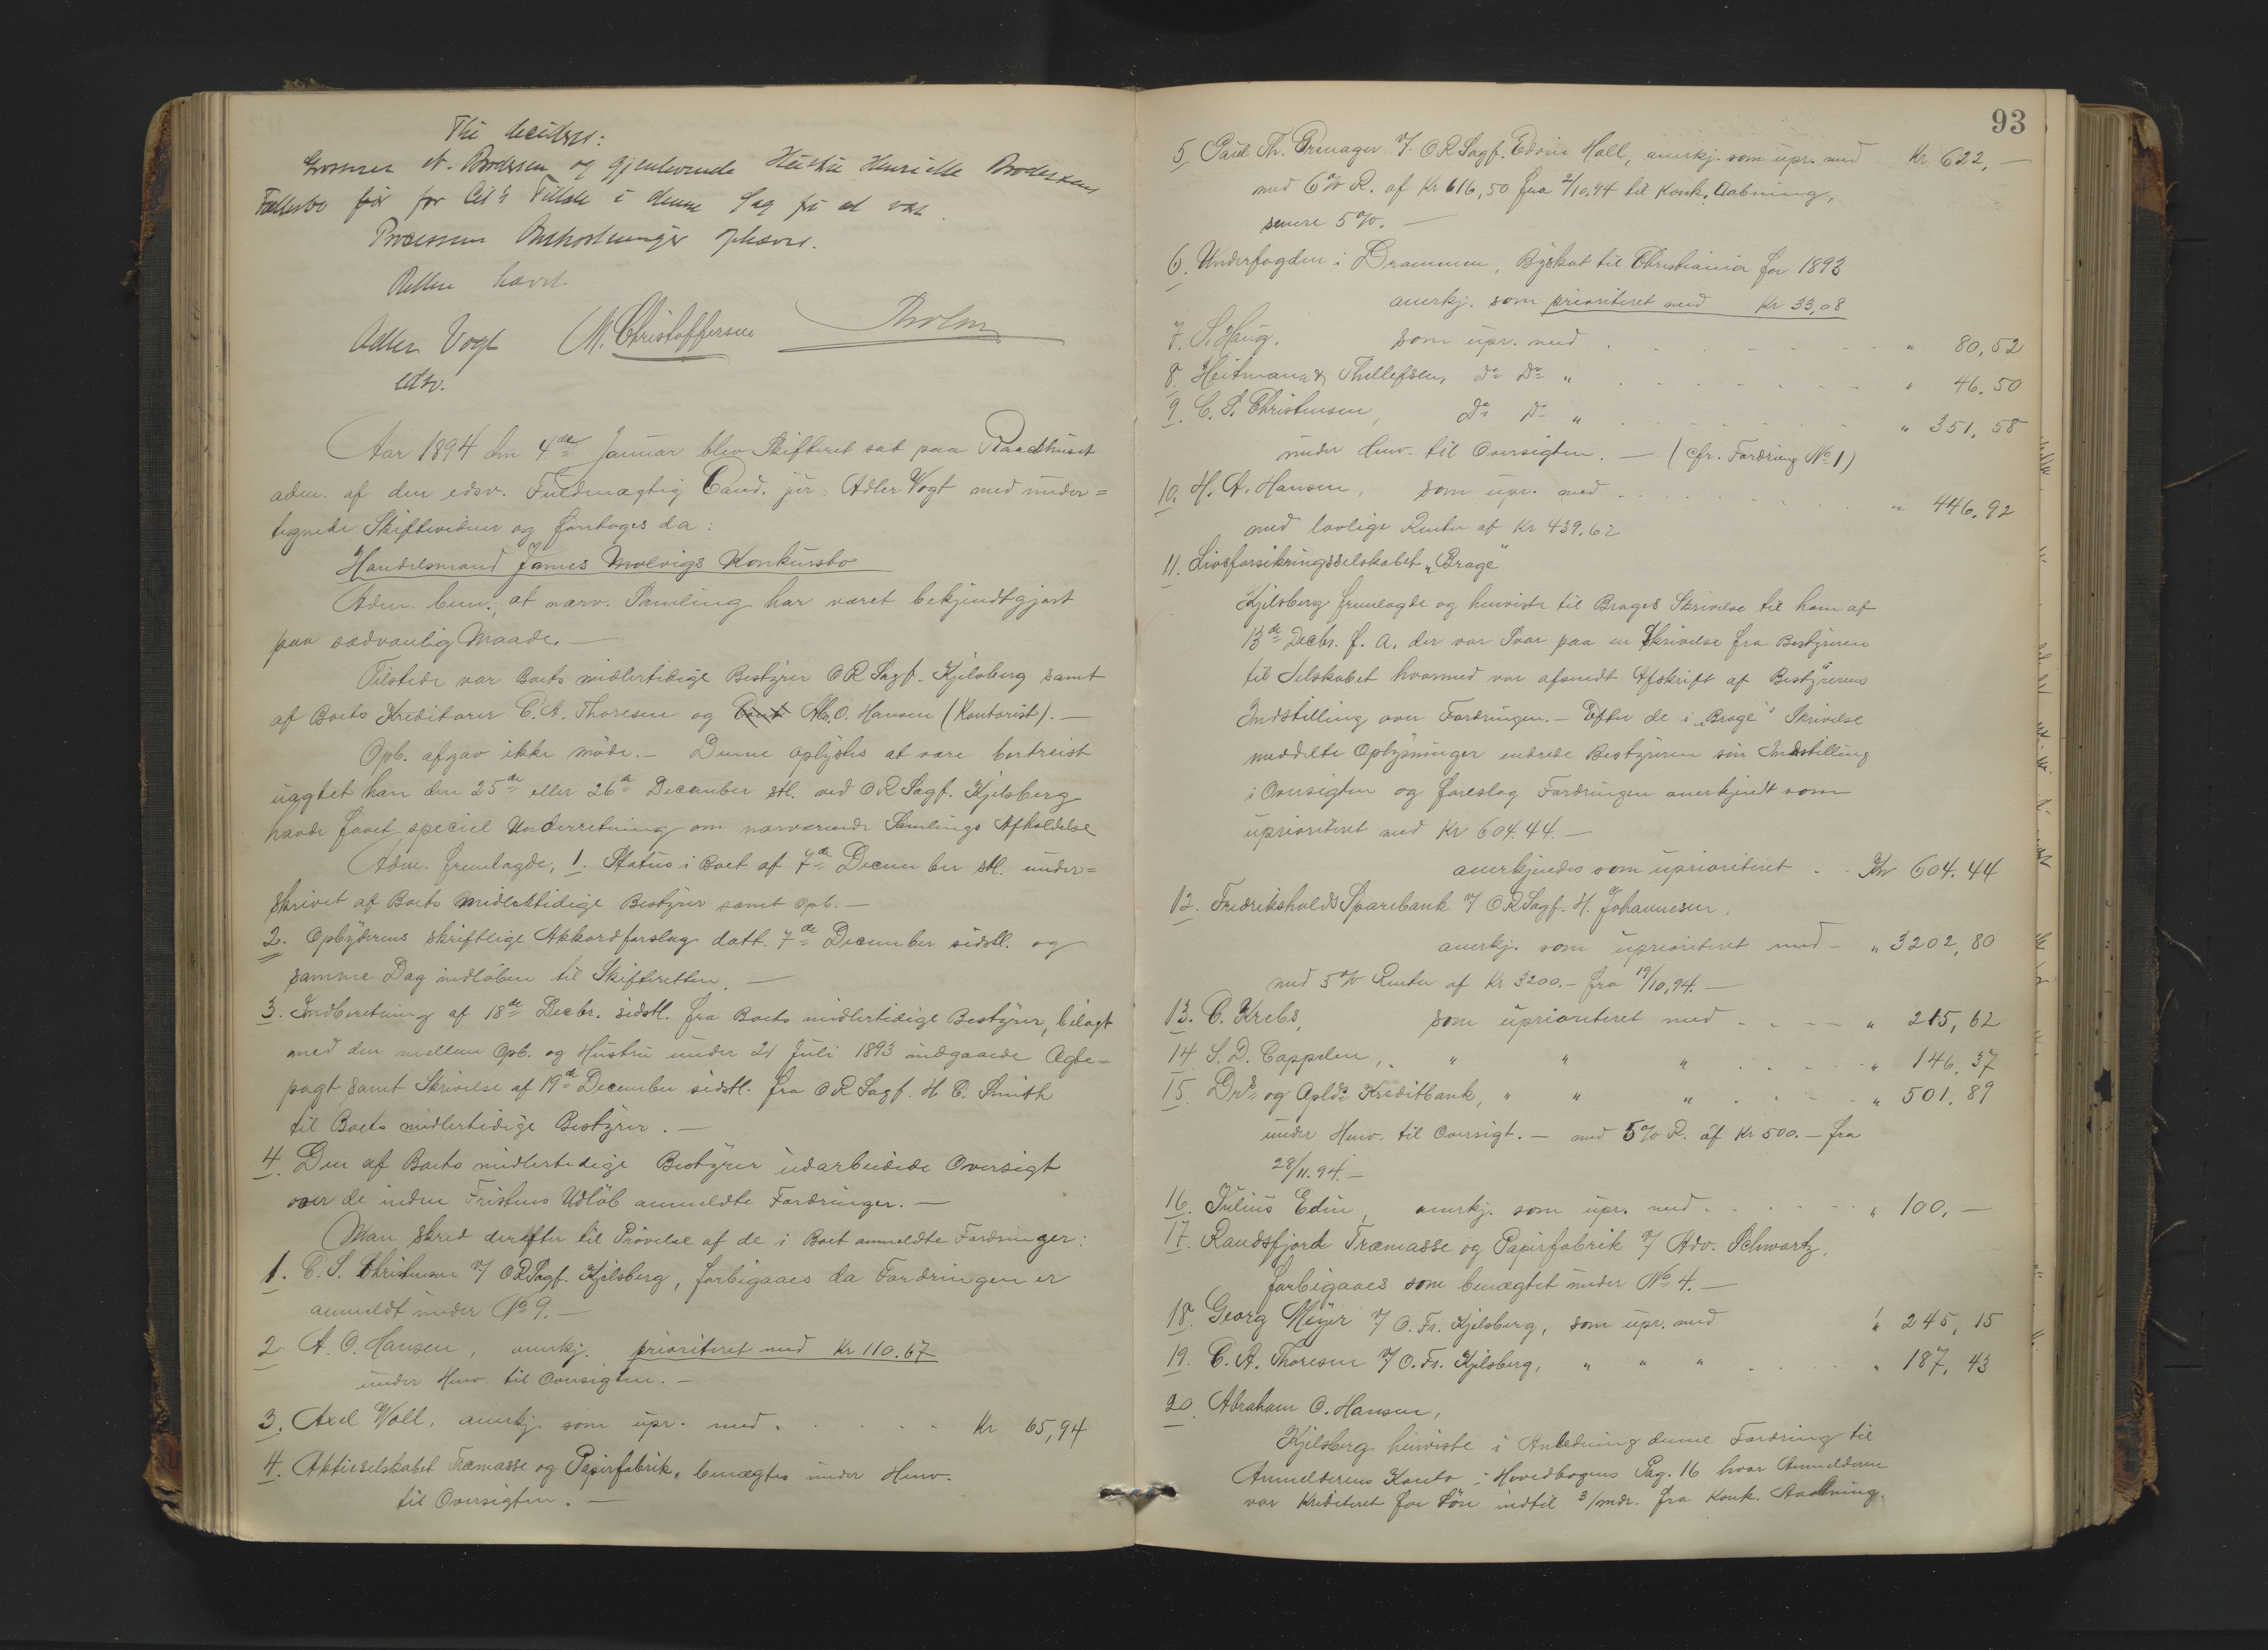 Thi kiendes:
Grosserer N. Brodersen og gjenlevende Hustru Henriette Brodersens
Fællesbo bør for Cit's Tiltale i denne Sag fri at være.
Processens Omkostninger ophæves.
Retten hævet.
Adler Vogt M. Christoffersen Tholm
edsv.
Aar 1894 den 4de Januar blev Skifteret sat paa Raadhuset
adm. af den edsv. Fuldmægtig Cand. jur. Adler Vogt med under=
tegnede Skiftevidner og foretoges da:
Handelsmand James Molvigs Konkursbo
Adm. bem., at nærv. Samling har været bekjendtgjort
paa sædvanlig Maade. —
Tilstede var Boets midlertidige Bestyrer OR Sagf. Kjelsberg samt
af Boets Kreditorer C. A. Thoresen og Ab. O. Hansen (Kontorist). —
Opb. afgav ikke møde. — Denne oplystes at være bortreist
uagtet han den 25de eller 26de December stl. ved OR Sagf. Kjelsberg
havde faaet speciel Underretning om nærværende Samlings Afholdelse
Adm. fremlagde, 1. Status i Boet af 7de December stl. under=
skrevet af Boets midlertidige Bestyrer samt Opb. —
2. Opbyderens skriftlige Akkordforslag datt. 7de December sidstl. og
samme Dag indløben til Skifteretten. —
3. Indberetning af 18de Decbr. sidstl. fra Boets midlertidige Bestyrer, bilagt
med den mellem Opb. og Hustru under 21 Juli 1893 indgaaede Ægte=
pagt samt Skrivelse af 19de December sidstl. fra OR Sagf. H C. Smith
til Boets midlertidige Bestyrer. —
4. Den af Boets midlertidige Bestyrer udarbeidede Oversigt
over de inden Fristens Udløb anmeldte Fordringer. —
Man skred derefter til Prøvelse af de i Boet anmeldte Fordringer:
1. C. S. Christensen v/ OR Sagf. Kjelsberg, forbigaaes da Fordringen er
anmeldt under No 9. —
2. A. O. Hansen, anerkj. prioriteret med Kr 110.67
under Henv. til Oversigten. —
3. Axel Woll, anerkj. som upr. med . . . . Kr 65,94
4. Aktieselskabet Træmasse og Papirfabrik, benægtes under Henv.
til Oversigten. —
93
5. Paul Th. v/. OR Sagf. Edvin Holl, anerkj. som upr. med Kr 622, —
med 6 % R. af Kr 616,50 fra 2/10.94 til Konk. Aabning,
senere 5 %. —
6. Underfogden i Drammen, Byskat til Christiania for 1893
anerkj. som prioriteret med Kr 33,08
7. S. Haug, som upr. med . . . . " 80,52
8. Heitmann & Thellefsen, do do " . . . . " 46.50
9. C. S. Christensen, do do " . . . . " 351,58
under Henv. til Oversigten. — (cfr. Fordring No 1)
10. H. A. Hansen, som upr. med . . . . " 446,92
med lovlige Renter af Kr 439.62
11. Livsforsikringsselskabet „Brage"
Kjelsberg fremlagde og henviste til Brages Skrivelse til ham af
13de Decbr. f. A. der var Svar paa en Skrivelse fra Bestyreren
til Selskabet hvormed var afsendt Afskrift af Bestyrerens
Indstilling over Fordringen. — Efter de i „Brage"s Skrivelse
meddelte Oplysninger endrede Bestyreren sin Indstilling
i Oversigten og foreslog Fordringen anerkjendt som
uprioriteret med Kr 604.44. —
anerkjendes som uprioriteret . . Kr 604.44
12. Fredrikshalds Sparebank v/ OR Sagf. H. Johannesen,
anerkj. som uprioriteret med — " 3202,80
med 5 % Renter af Kr 3200. — fra 19/10,94. —
13. C. Krebs, som uprioriteret med . . . . " 215,62
14. S. D. Cappelen, " " " . . . . " 146,37
15. Drs og Oplds Kreditbank, " " " . . . . " 501.89
under Henv. til Oversigt. — med 5 % R. af Kr 500. — fra
28/11.94. —
16. Julius Edin, anerkj. som upr. med . . . . " 100, —
17. Randsfjord Træmasse og Papirfabrik v/ Adv. Schwartz,
forbigaaes som benægtet under No 4. —
18. Georg Meyer v/ O. Fr. Kjelsberg, som upr. med " 245,15
19. C. A. Thoresen v/ O. Fr. Kjelsberg, " " " . . . . " 187,43
20. Abraham O. Hansen,
Kjelsberg henviste i Anledning denne Fordring til
Anmelderens Konto i Hovedbogens Pag. 16 hvor Anmelderen
var krediteret for Løn indtil 3/mdr. fra Konk. Aabning.